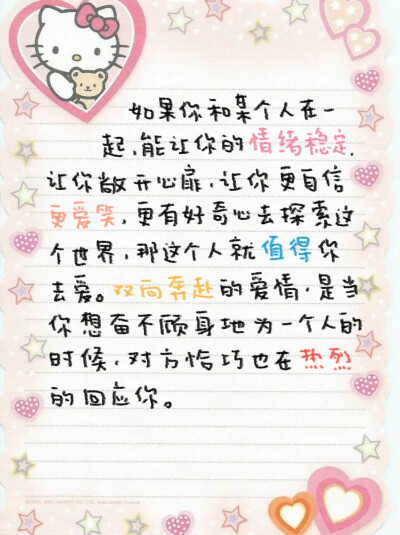 如果你和某个人在一
起,能让你的情绪稳定.
让你敞开心扉,让你更自信
更爱笑,更有好奇心去探索这
个世界,那这个人就值得你
去爱。双向奔赴的爱情,是当
你想奋不顾身地为一个人的
时候,对方恰巧也在热烈
的回应你。